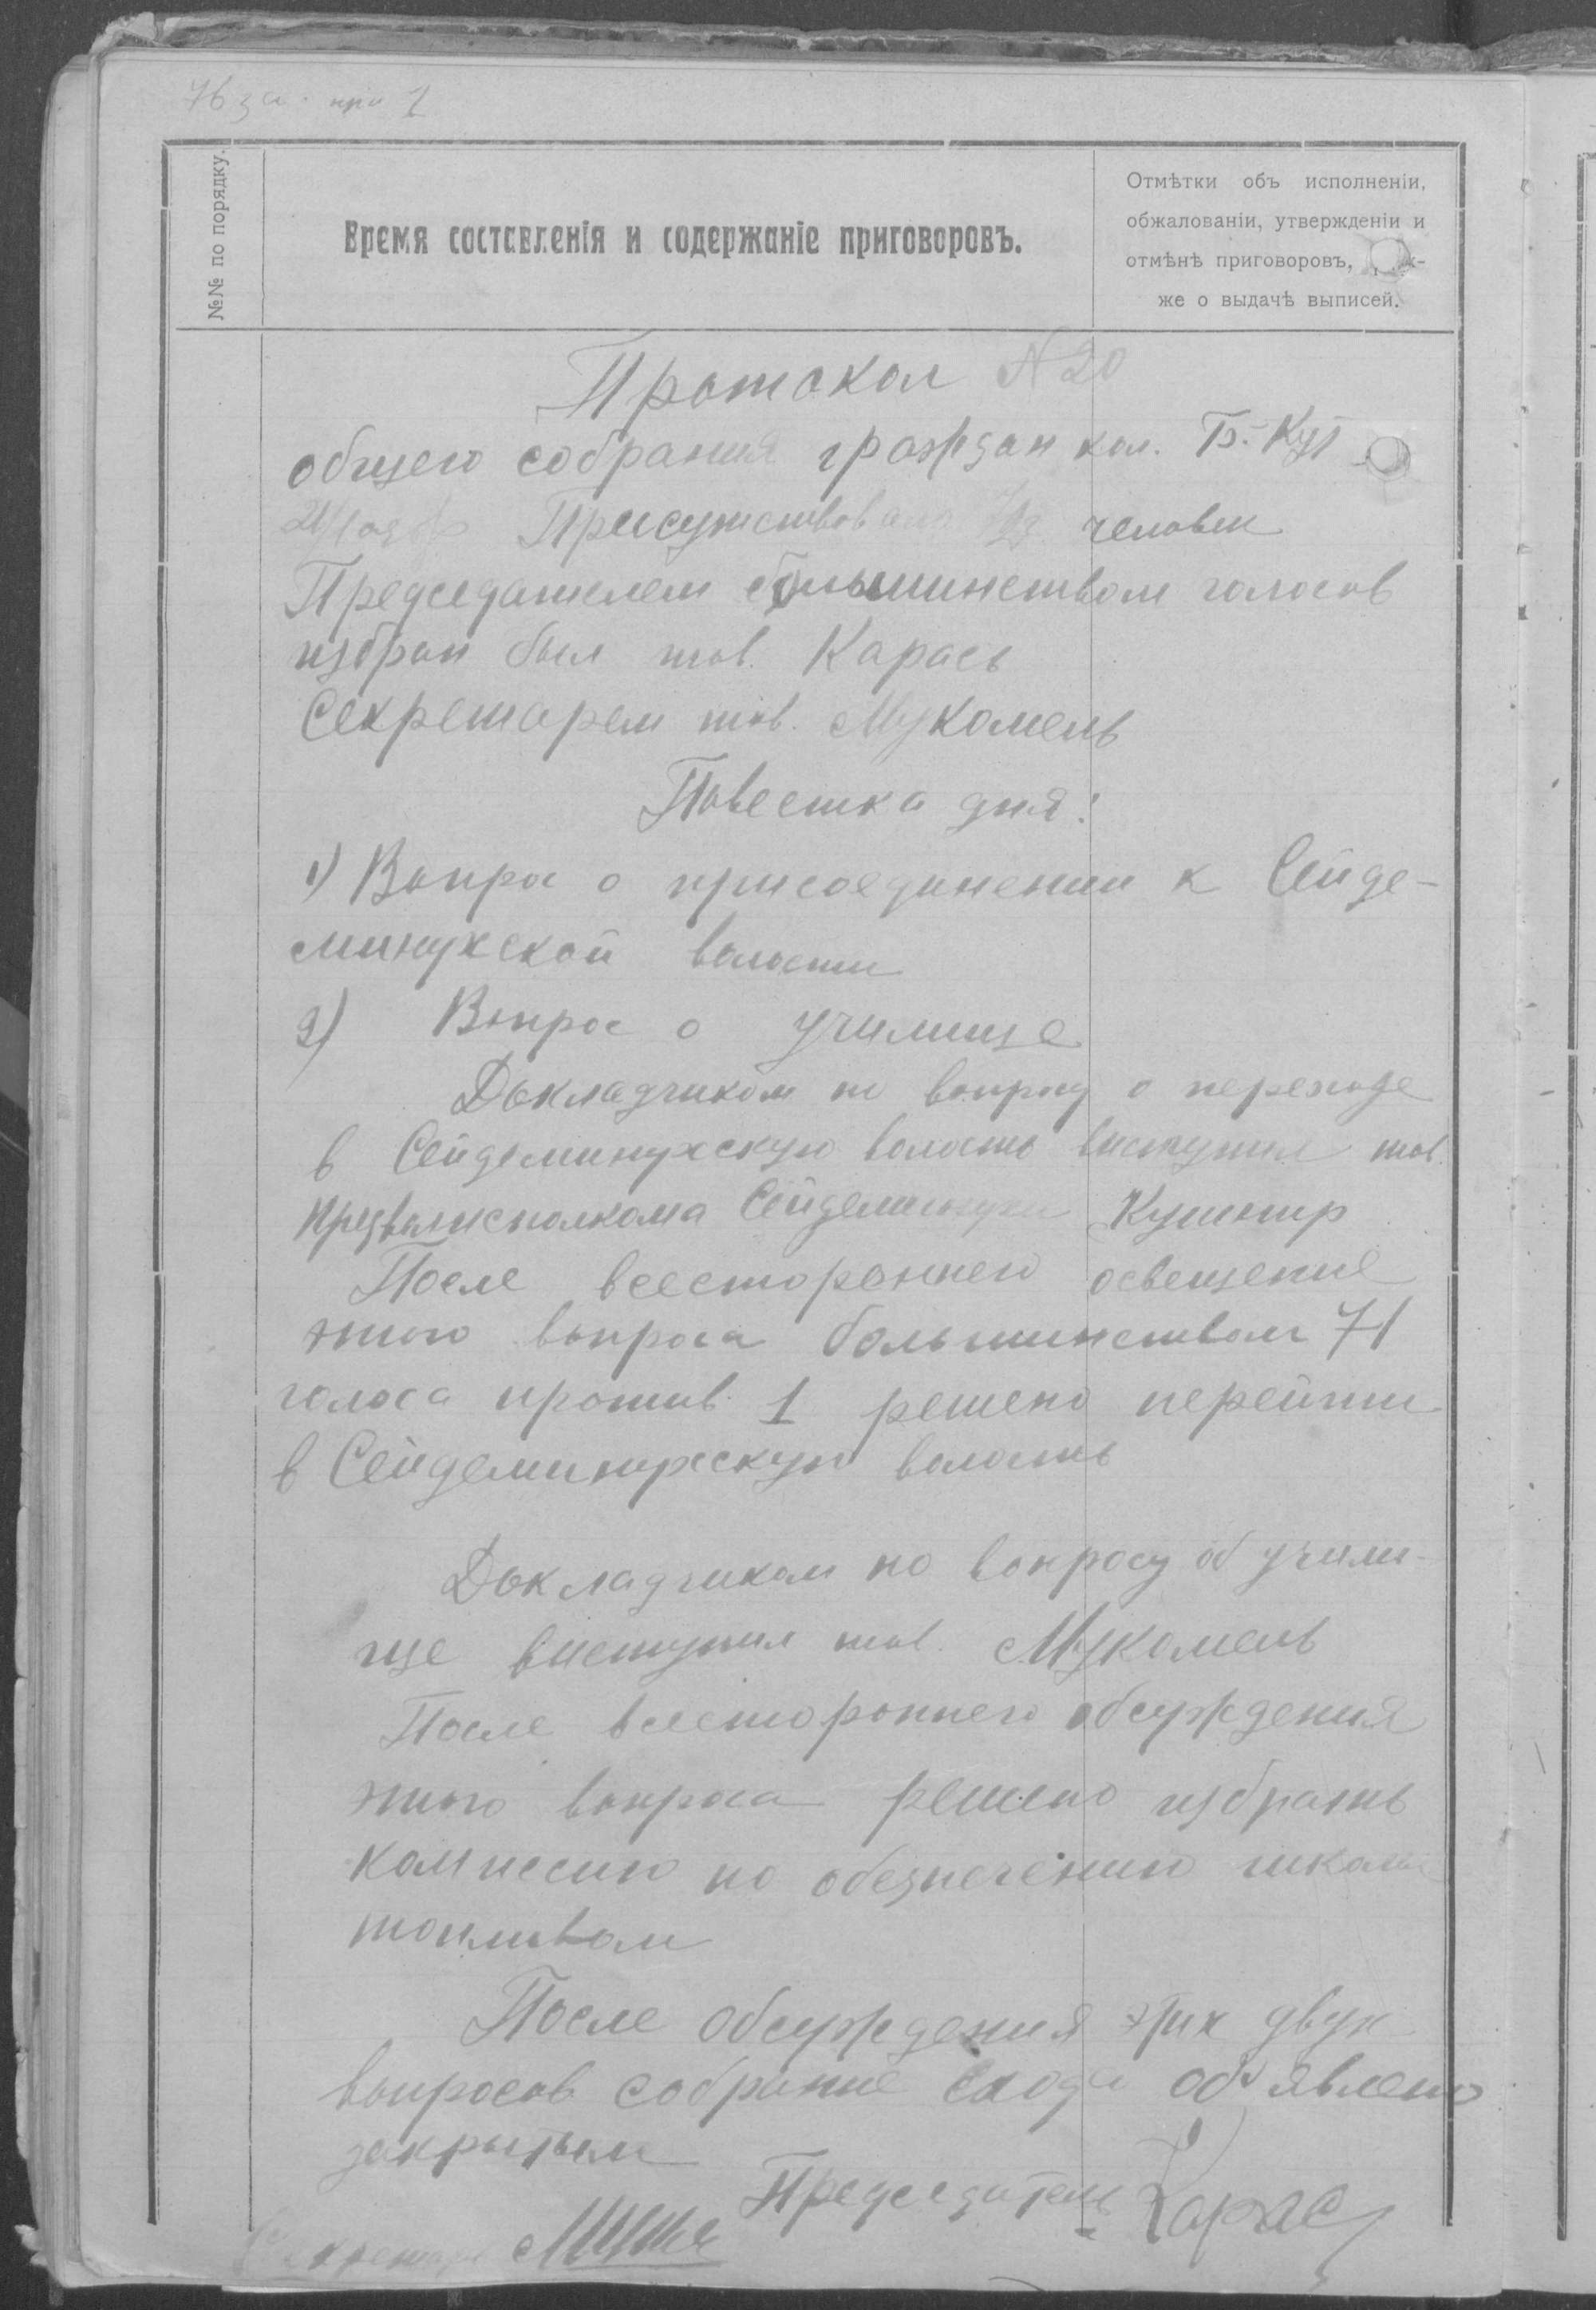 76 за. при 1
№№ по порядку.
Время составленія и содержаніе приговоровъ.
Отмѣтки объ исполненіи,
обжалованіи, утвержденіи и
отмѣнѣ приговоровъ,
же о выдачѣ выписей.
Протокол N 20
общего собрания граждан кол. Б.-Кут
Присутствовало человек
Председателем большинством голосов
избран был тов. Карась
Секретарем тов. Мукомель
Повестка дня:
1) Вопрос о присоединении к Сейде-
минухской волости
2) Вопрос о училище
Докладчиком по вопросу о переходе
в Сейдеминухскую волость виступил тов.
предволисполкома Сейдеминухи Кушнир
После всестороннего освещение
этого вопроса большинством 71
голоса против 1 решено перейти
в Сейдеминухскую волость
Докладчиком по вопросу об учили-
ще виступил тов. Мукомель
После всестороннего обсуждения
этого вопроса решено избрать
комиссию по обезпечению школы
топливом
После обсуждения этих двух
вопросов собрание схода об'явлено
закрытым
Председатель Карась
Секретарь